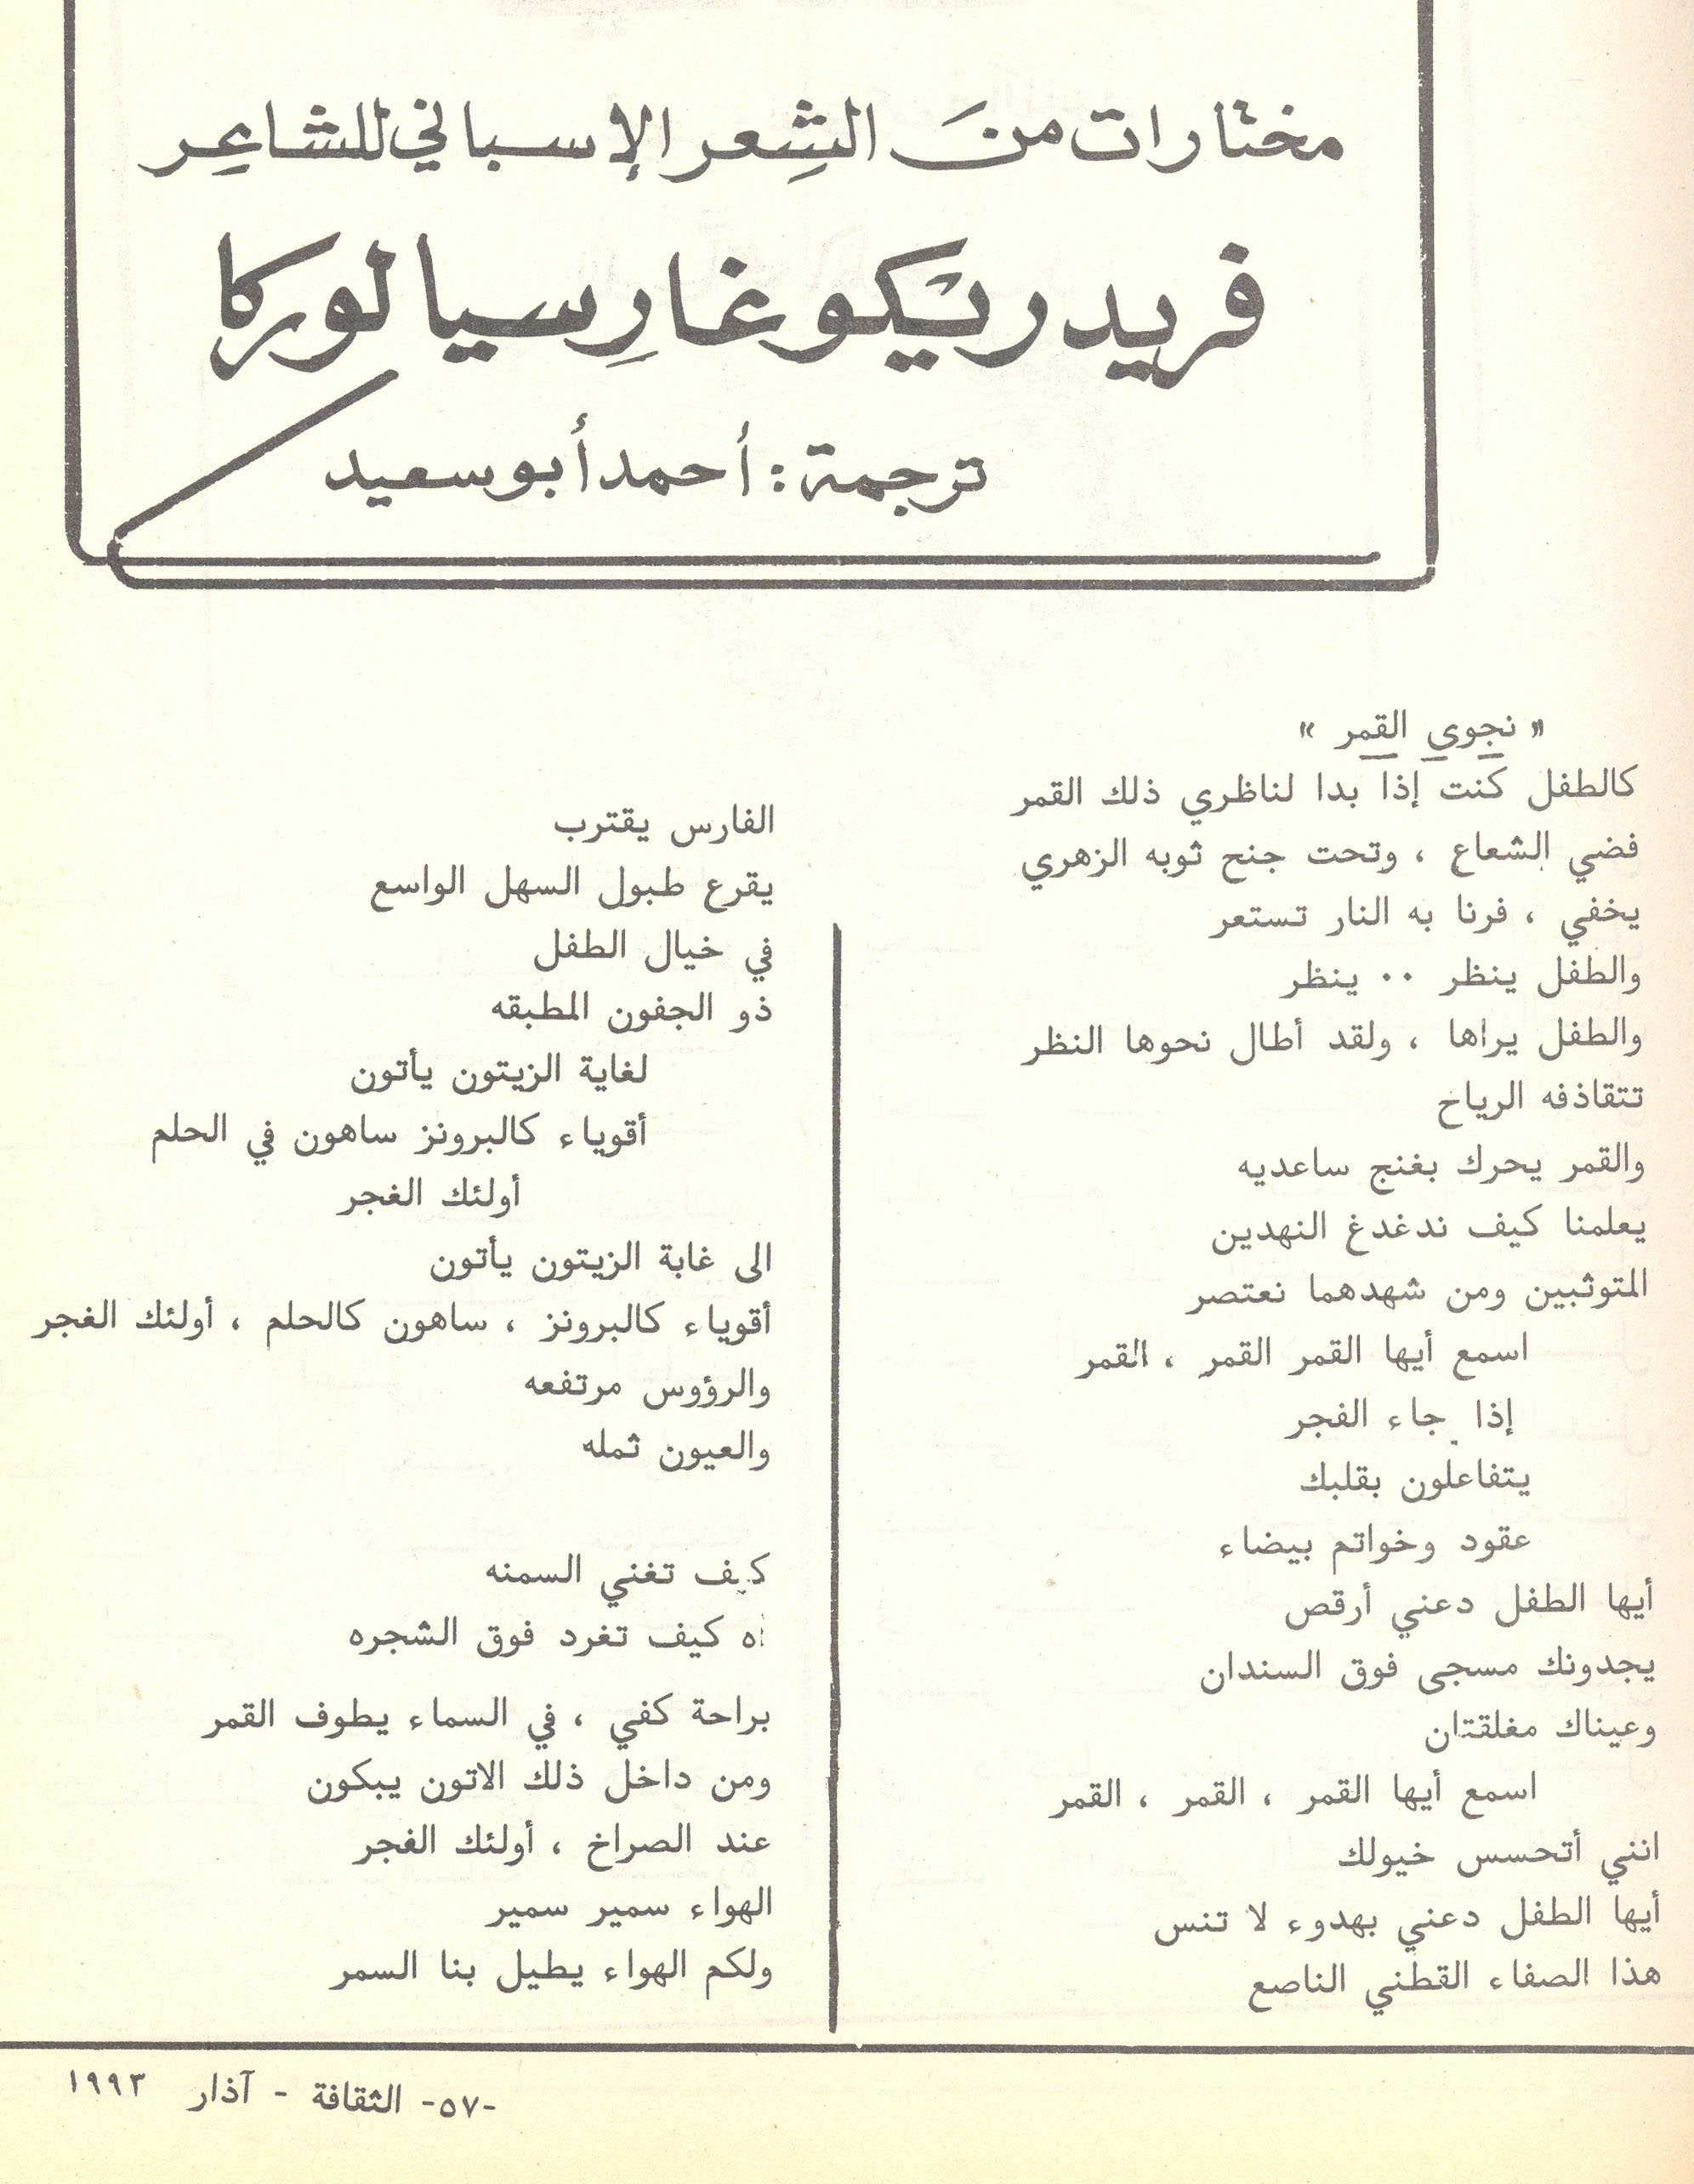 مختارات من الشعر الإسباني للشاعر
فريدريكو غارسيا لوركا
ترجمة : أحمد أبو سعيد
« نجوي القمر »
كالطفل كنت إذا بدا لناظري ذلك القمر
فضي الشعاع ، وتحت جنح ثوبه الزهري
يخفي ، فرنا به النار تستعر
والطفل ينظر .. ينظر
والطفل يراها ، ولقد أطال نحوها النظر
تتقاذفه الرياح
والقمر يحرك بغنج ساعديه
يعلمنا كيف ندغدغ النهدين
المتوثبين ومن شهدهما نعتصر
اسمع أيها القمر القمر ، القمر
إذا جاء الفجر
يتفاعلون بقلبك
عقود وخواتم بيضاء
أيها الطفل دعني أرقص
يجدونك مسجى فوق السندان
وعيناك مغلقتان
اسمع أيها القمر ، القمر ، القمر
انني أتحسس خيولك
أيها الطفل دعني بهدوء لا تنس
هذا الصفاء القطني الناصع
الفارس يقترب
يقرع طبول السهل الواسع
في خيال الطفل
ذو الجفون المطبقه
لغاية الزيتون يأتون
أقوياء كالبرونز ساهون في الحلم
أولئك الغجر
الى غابة الزيتون يأتون
أقوياء كالبرونز ، ساهون كالحلم ، أولئك الغجر
والرؤوس مرتفعه
والعيون ثمله
كيف تغني السمنه
اه كيف تغرد فوق الشجره
براحة كفي ، في السماء يطوف القمر
ومن داخل ذلك الاتون يبكون
عند الصراخ ، أولئك الغجر
الهواء سمير سمير
ولكم الهواء يطيل بنا السمر
-٥٧- الثقافة - آذار ١٩٩٣